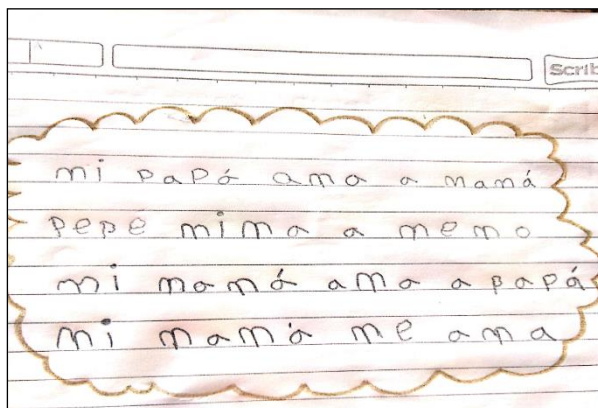 Scrib
mi papá ama a mamá
pepe mima a memo
mi mamá ama a papá
mi mamá me ama